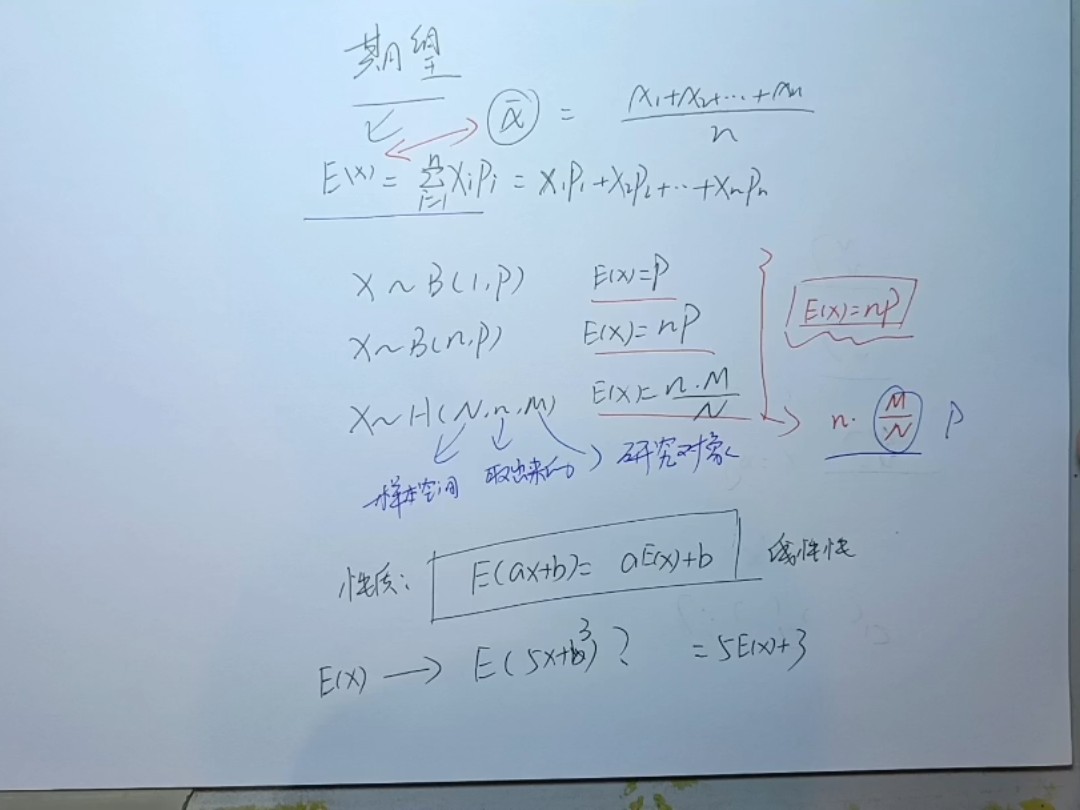 期望
x̄ = (x₁+x₂+…+xₙ)/n
E(x) = ∑ᵢ₌₁ⁿ xᵢpᵢ = x₁p₁+x₂p₂+…+xₙpₙ
X~B(1,P) E(x)=P
X~B(n,P) E(x)=nP E(x)=nP
X~H(N,n,M) E(x)=n·M/N n·M/N P
样本空间 取出来的 研究对象
性质: E(ax+b)= aE(x)+b 线性性
E(x) → E(5x+3)? =5E(x)+3